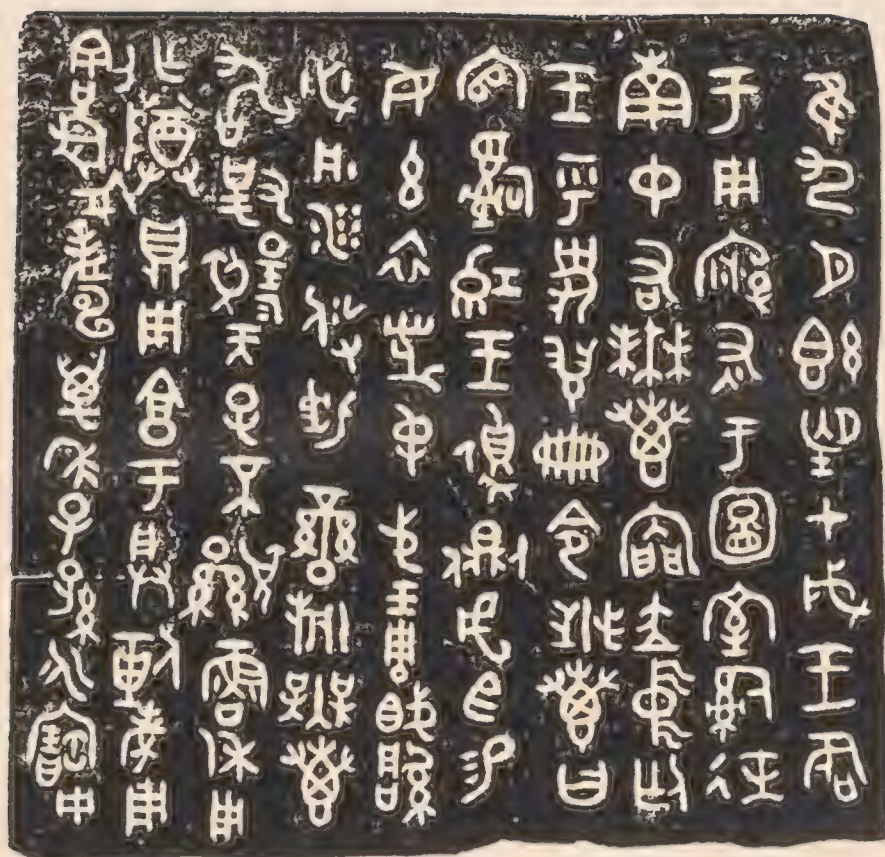 隹九月既望甲戌王各
于周廟灰于圖室嗣徒
南中右無叀內門立中廷
王乎史翏冊令無叀曰
官嗣紅王遉側虎臣易
女玄衣黹屯戈琱㦸縞
必彤沙攸勒䜌旂無叀
敢對揚天子不顯魯休用
乍尊鼎用亯于朕剌考用
割眉壽萬年子孫永寶用